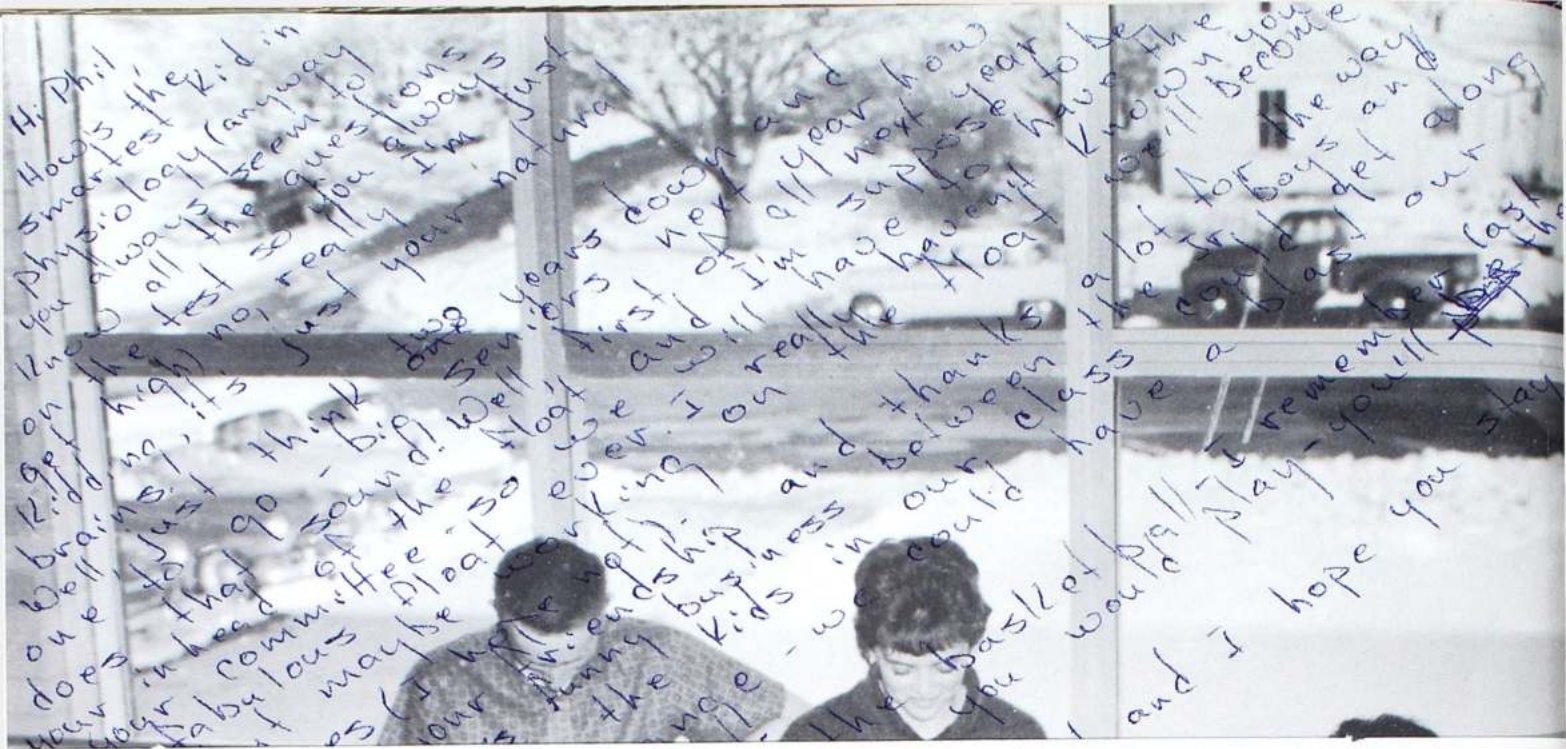 Hi Phil
How's the
smartest kid in
physiology (anyway
you always seem to
know all the questions
on the test so you always
get high) no, really I'm just
kidding, it's just your natural
brains.
Well just think two years down and
one to go - big seniors next year how
does that sound! Well first of all next year
your in head of the float and I'm suppose to be
your committee - so we will have to have the
fabulous float ever. I really havent known you
maybe working on the float we'll become
(I hope not).
our friendship and thanks a lot for the way
funny business between the jr. boys and
the kids in our class could get along
we could have a blast our
the basketball - I remember last
you would play - you'll the
and I hope you stay